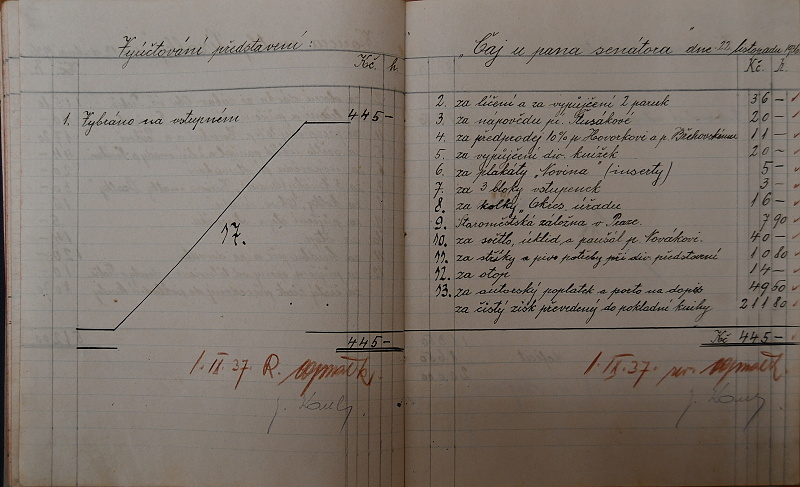 Vyúčtování představení:
Kč. h.
1. Vybráno na vstupném 445 –
17.
445 –
1. II. 37. R.
"Čaj u pana senátora" dne 22. listopadu 1936
Kč. h.
2. za líčení a za vypůjčení 2 paruk 36 –
3. za nápovědu pí. Rusákové 20 –
4. za předprodej 10% p. Hovorkové a p. 11 –
5. za vypůjčení div. knížek 20 –
6. za plakáty "Novina" (inserty) 5 –
7. za 3 bloky vstupenek 3 –
8. za kolky Okres. úřadu 16 –
9. Staroměstská záložna v Praze. 7 90
10. za světlo, úklid a paušál p. Novákovi. 40 –
11. za a pivo při div. představení 10 80
12. za otop 14 –
13. za autorský poplatek a porto na dopis 49 50
za čistý zisk převedený do pokladní knihy 211 80
Kč 445 –
1. II. 37.